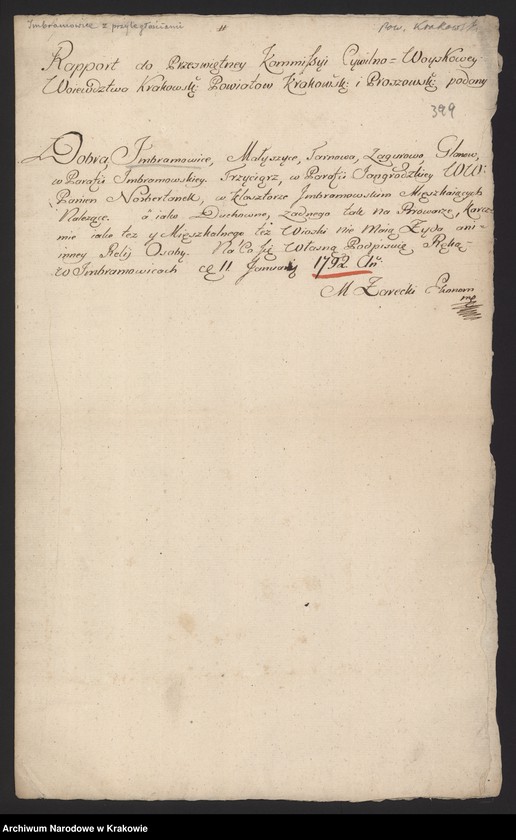 Imbramowice z przyległościami
"
Pow. Krakowsk
Rapport do Przeświętney Kommißyi Cywilno=Woyskowey
Woiewodztwa Krakowskº Powiatow Krakowskº i Proszowskº podany
399
Dobra Imbramowice, Małyszyce, Tarnawa, Zagurowa, Glanow,
w Parafii Imbramowskiey. Trzyciąrz, w Parafii WW:
Panien Norbertanek, w Klasztorze Imbramowskim Mięszkaiących
Należące. a iako Duchowne, żadnego tak na Browarze, Karcz
mie iako też y Mięszkalnego też Wioski nie Maią Żyda ani
inney Relij Osoby. Na Co się Własną Podpisuię Ręką
w Imbramowicach 11 January 1792 Ar.
M Zarecki Ekonom
mp
Archiwum Narodowe w Krakowie